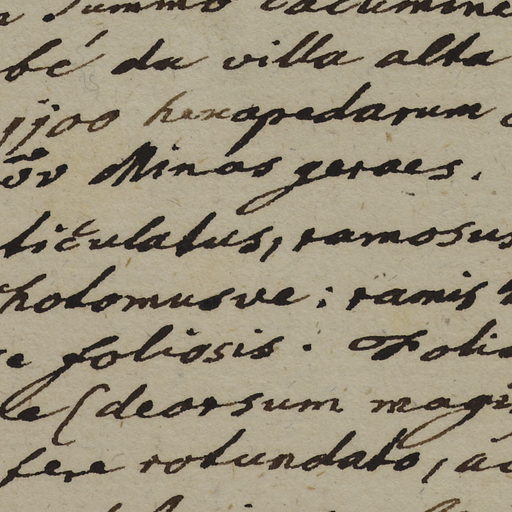 summo cacumine
bé da villa alta
hexapedarum
Minas geraes.
ticulatus, ramosus
hotomusve: ramis
foliosis. Foli
le (deorsum magi
fere rotundato, a